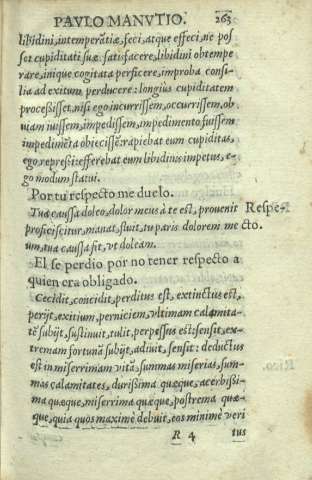 PAVLO MANVTIO. 263
libidini, intemperātiæ, feci, atque effeci, ne pos
set cupiditati suæ satisfacere, libidini obtempe
rare, inique cogitata perficere, improba consi-
lia ad exitum perducere: longius cupiditatem
processisset, nisi ego incurrissem, occurrissem, ob
uiam iuissem, impedissem, impedimento fuissem
impedimēta obiecissē: rapiebat eum cupiditas,
ego repressi: efferebat eum libidinis impetus, e-
go modum statui.
Por tu respecto me duelo.
Tua caussa doleo, dolor meus à te est, prouenit Respe-
proficiscitur, manat, fluit, tu paris dolorem me cto.
um, tua caussa fit, vt doleam.
El se perdio por no tener respecto a
quien era obligado.
Cecidit, concidit, perditus est, extinctus est,
perijt, exitium, perniciem, vltimam calamita-
tē subijt, sustinuit, tulit, perpessus est: sensit, ex-
tremam fortunā subijt, adiuit, sensit: deductus
est in miserrimam vitā, summas miserias, sum-
mas calamitates, durissima quæque, acerbissi-
ma quæque, miserrima quæque, postrema quæ-
que, quia quos maximè debuit, eos minimè veri
R 4 tus